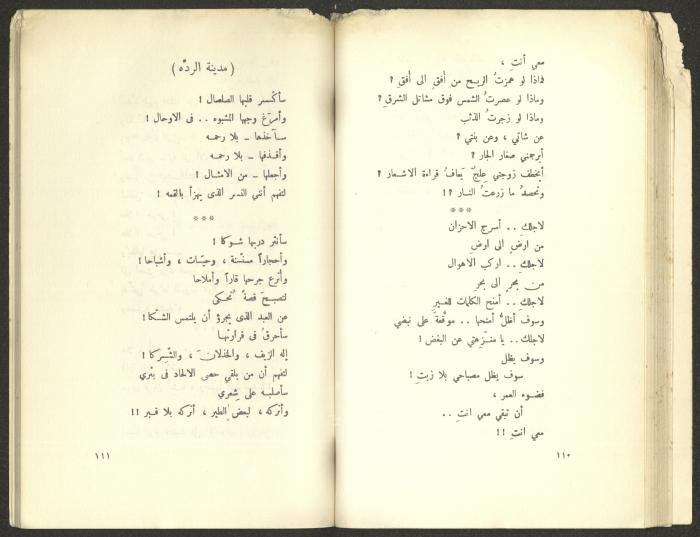 معي أنتِ ،
فماذا لو همزتُ الريح من أفقٍ الى أفقِ ؟
وماذا لو عصرتُ الشمس فوق مشاتل الشرقِ ؟
وماذا لو زجرتُ الذئب
عن شاتي ، وعن بنتي ؟
أيرجمني صغار الجار ؟
أيخطف زوجتي عِلجٌ يعافُ قراءة الاشعار ؟
وتحصدُ ما زرعتُ النار ؟!
***
لاجلكِ .. أسرج الاحزان
من ارضٍ الى ارضِ
لاجلك .. اركب الاهوال
من بحرٍ الى بحرِ
لاجلكِ .. أمنح الكلمات للغيرِ
وسوف أظلُّ أمنحها .. موقَّعةً على نبضي
لاجلك .. يا منزّهتي عن البغض !
وسوف يظل
سوف يظل مصباحي بلا زيتِ !
فضوء العمر ،
أن تبقي معي انتِ ..
معي انتِ !!
١١٠
( مدينة الردَّه )
سأكسر قلبها الصلصال !
وأمرّغ وجهها المشبوه .. في الاوحال !
سآخذها ــ بلا رحمه
وأقذفها ــ بلا رحمه
وأجعلها ــ من الامثال !
لتفهم أنني النسر الذى يهزأ بالقمه !
***
سأنثر دربها شوكا !
وأحجاراً مسنّنة ، وحيّات ، وأشباحا !
وأترع جرحها قاراً وأملاحا
لتصبحَ قصةً تُحكى
عن العبد الذى يجرؤ أن يلتمس الشكا !
سأحرقُ في قرارتها
إله الزيف ، والخذلان ، والشِركا !
لتفهم أن من يلقي حصى الالحاد في بئري
سأصلبه على شِعري
وأتركه ، لبعض الطير ، أتركه بلا قبر !!
١١١